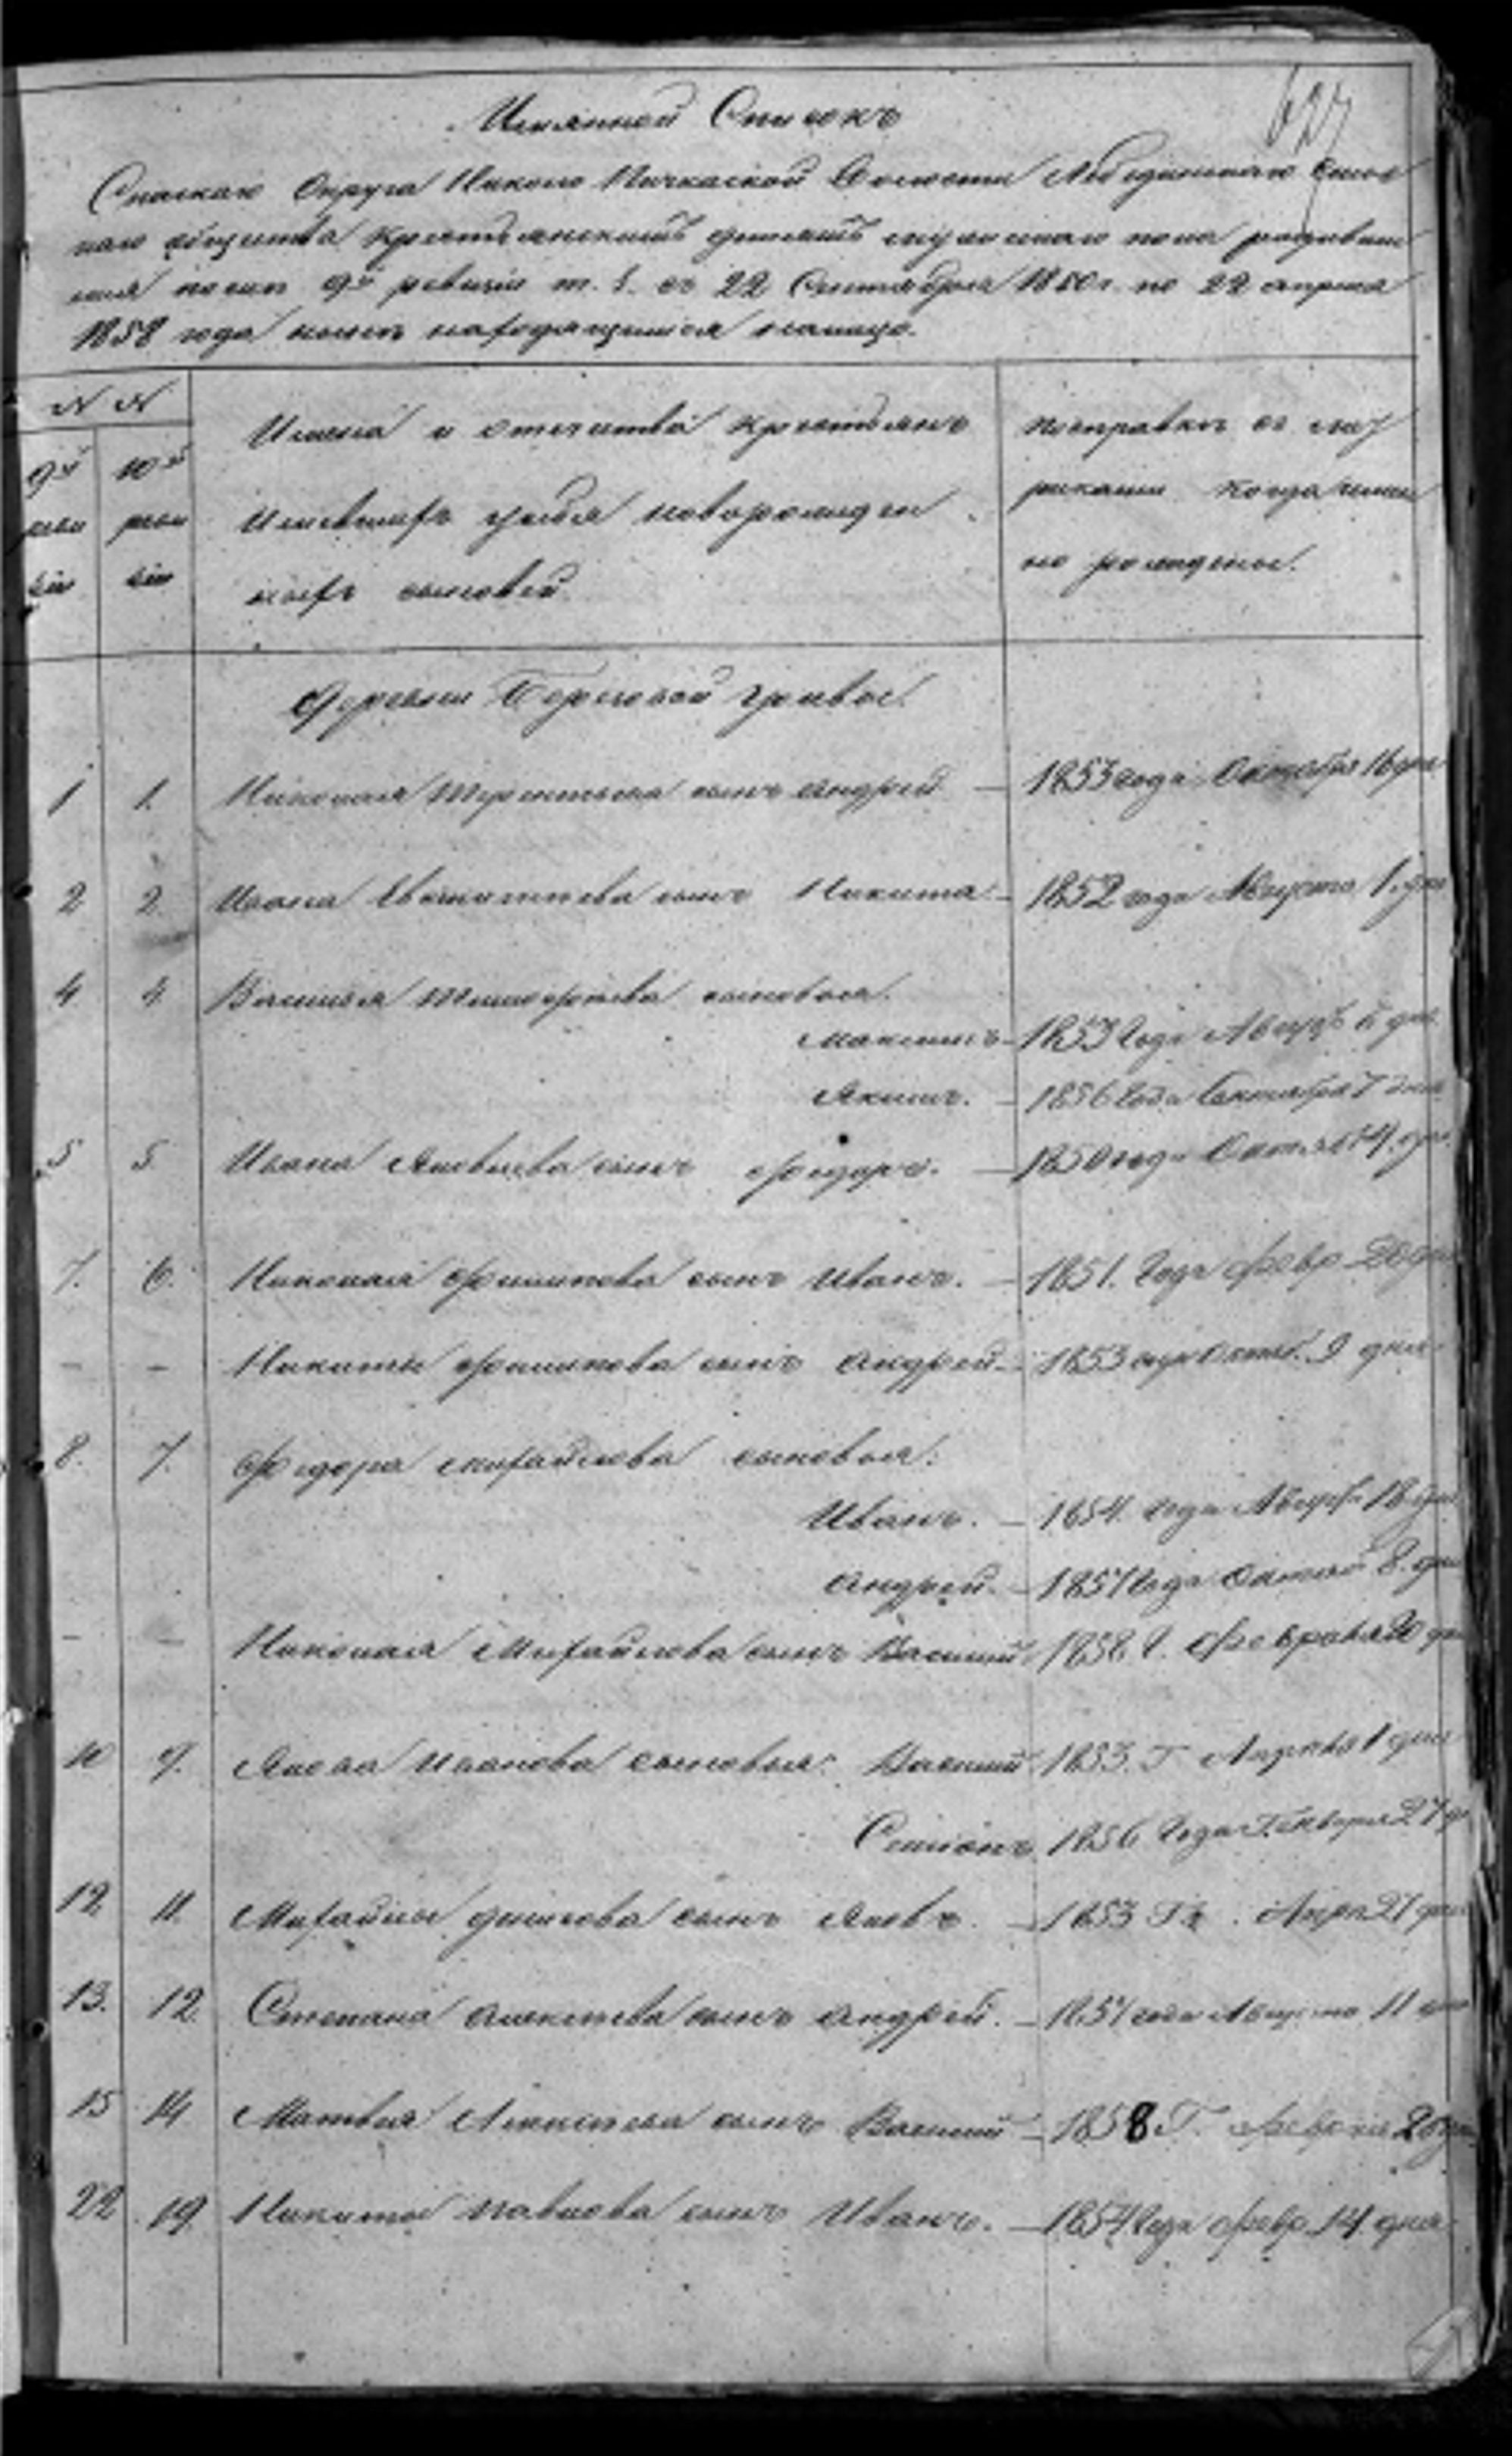 Имянной Списокъ
627
Спаскаго Округа Николо Пичкаской Волости Лебединскаго Сель
скаго общества Крестьянскимъ дѣтямъ мужескаго пола родившим
ся послѣ 9й ревизіи т. е. съ 22 Сентября 1850 г. по 22 апрѣля
1858 года нынѣ находящимся на лицо.
№ №
9й реви зіи
10й реви зіи
Имена и отечества Крестьянъ
Имевшихъ у себя новорожден
ныхъ сыновей
По справкѣ съ мет
риками когда имен
но рождены.
Деревни Березовой гривы.
1 1. Николая Терентьева сынъ Андрей — 1853 года Октября 16 дня
2 2 Ивана сынъ Никита — 1852 года Августа 1. дня
4 4 Василья Тимофѣева сыновья.
Максимъ — 1853 Года Авгус 6 дня
Якимъ. — 1856 Года Сентября 7 дня
5 5. Ивана Яковлева сынъ Федоръ. — 1850 года 14. дня
7. 6. Николая Филипова сынъ Иванъ. — 1851. Года Февр 20 дня
— — Никиты Филипова сынъ Андрей — 1853 9 дня
8. 7. Федора Михайлова сыновья:
Иванъ. — 1854. года Авгус 18 дня
Андрей. — 1857 Года 8. дня
— — Николая Михайлова сынъ Василий 1858 г. Февраля 20 дня
10 9. Якова Иванова сыновья: Василий 1853. Г Апрѣля 1 дня
Семіонъ 1856 Года Генваря 27 д
12 11. Михайлы сынъ Яковъ. — 1853 Апрѣ 21 дня
13. 12 Степана Алексѣева сынъ Андрей. — 1857 года Августа 11 дня
15 14 Матвѣя Алексѣева сынъ Василий — 1858 Г. Февраля 26 дня
22 19. Никиты Павлова сынъ Иванъ. — 1854 Года Февр. 14. дня